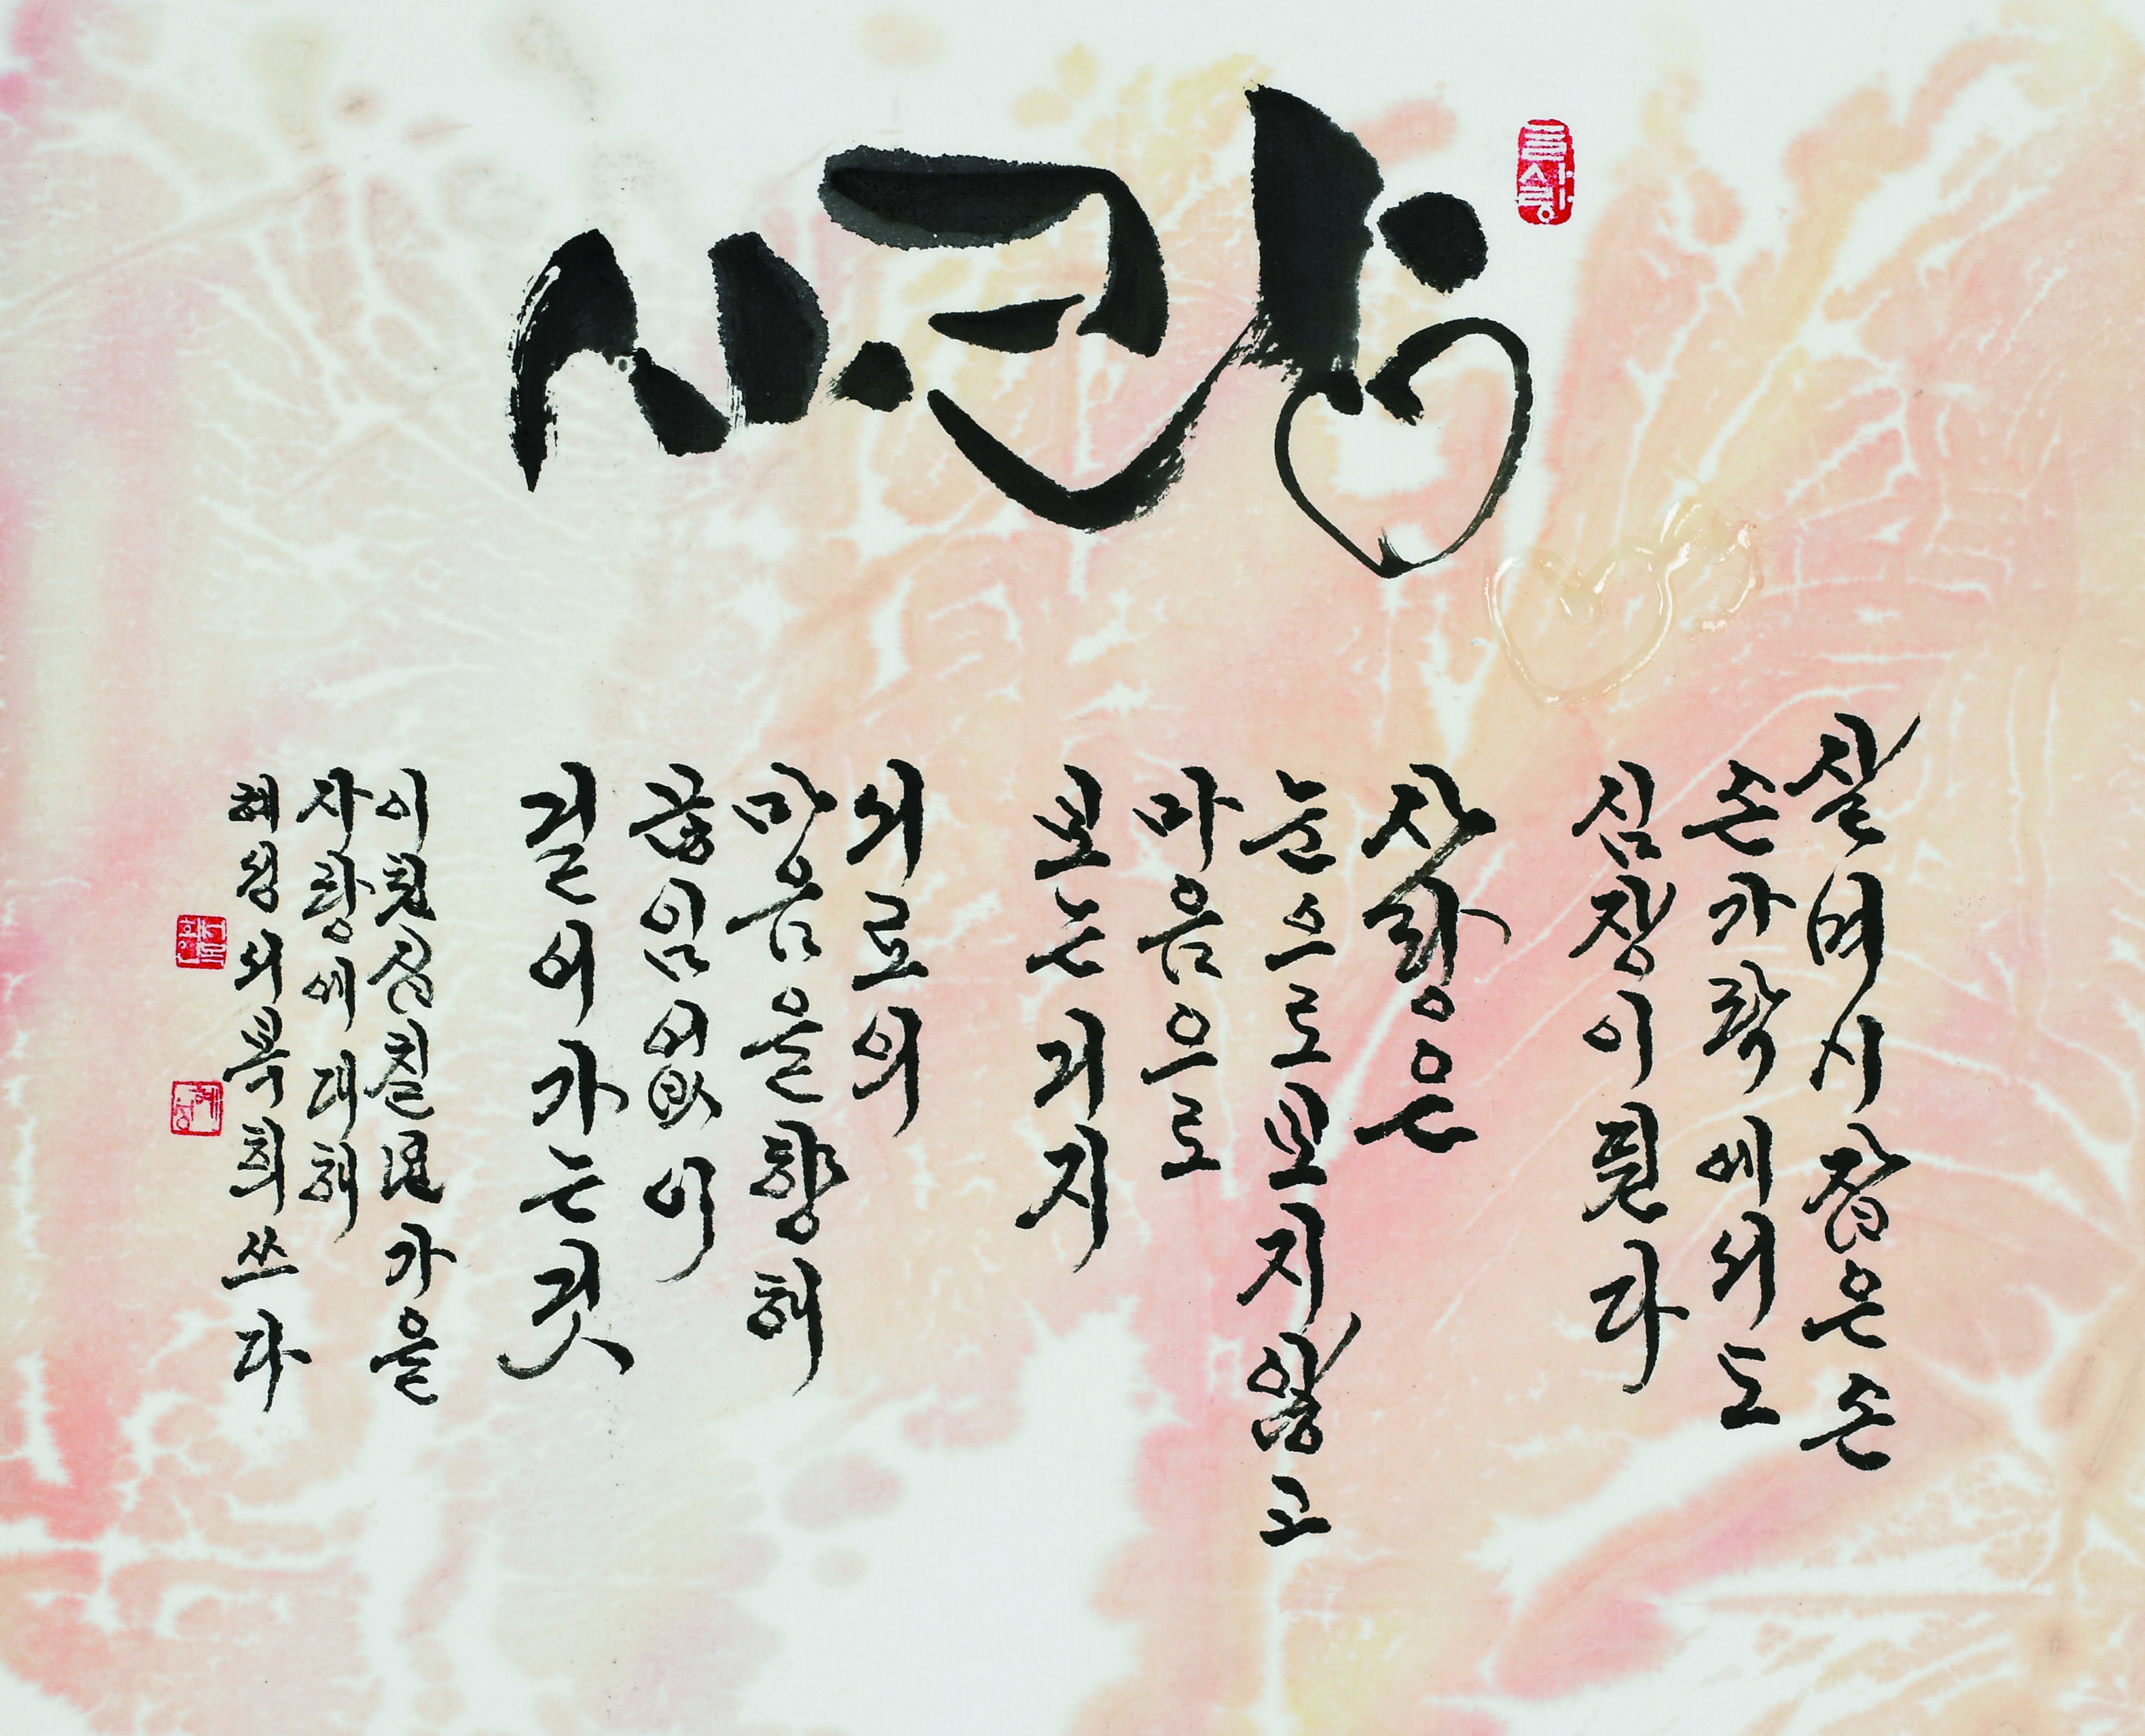 사랑
글사랑
살며시 잡은 손
손가락에서도
심장이 뛴다
사랑은
눈으로 보지 않고
마음으로
보는 거지
서로의
마음을 향해
끊임없이
걸어가는 것
이천십칠년 가을
사랑에 대해
서복희 쓰다